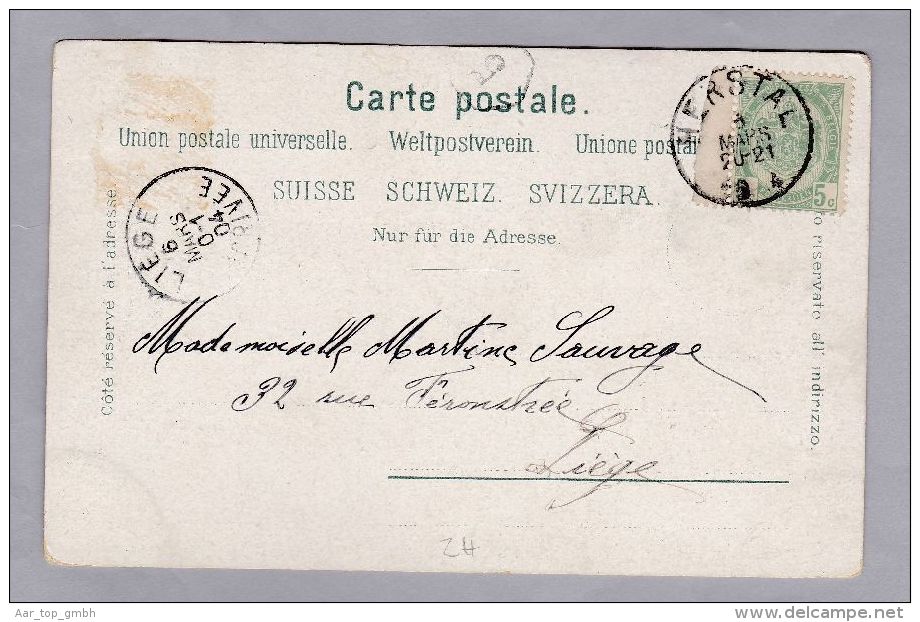 Carte postale.
Union postale universelle. Weltpostverein. Unione postal
SUISSE SCHWEIZ. SVIZZERA.
Nur für die Adresse.
HERSTAL
MARS
20-21
5c
LIEGE
6
MARS
0-1
04
Côté réservé à l'adresse.
riservato all' indirizzo.
Mademoiselle Martine Sauvage
32 rue Féronstrée
Liège
ZH
Aar_top_gmbh
delcampe.net